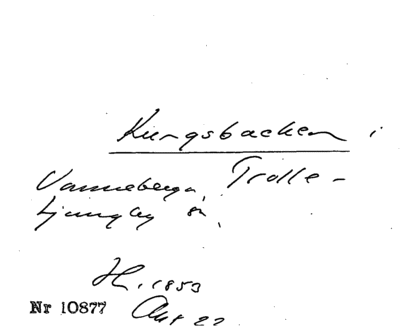 Kungsbacken i
Vanneberga, Trolle-
Ljungby sn.
H. 1853
Nr 10877 Akt 22